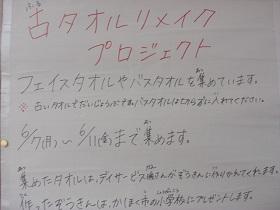 古タオルリメイク
プロジェクト
フェイスタオルやバスタオルを集めています。
※ 古いタオルでだいじょうぶです。バスタオルはきらずに入れてください。
6/7(月)～6/11(金)まで集めます。
集めたタオルは、デイサービス
作ったぞうきんは、かほく市の小学校にプレゼントします。